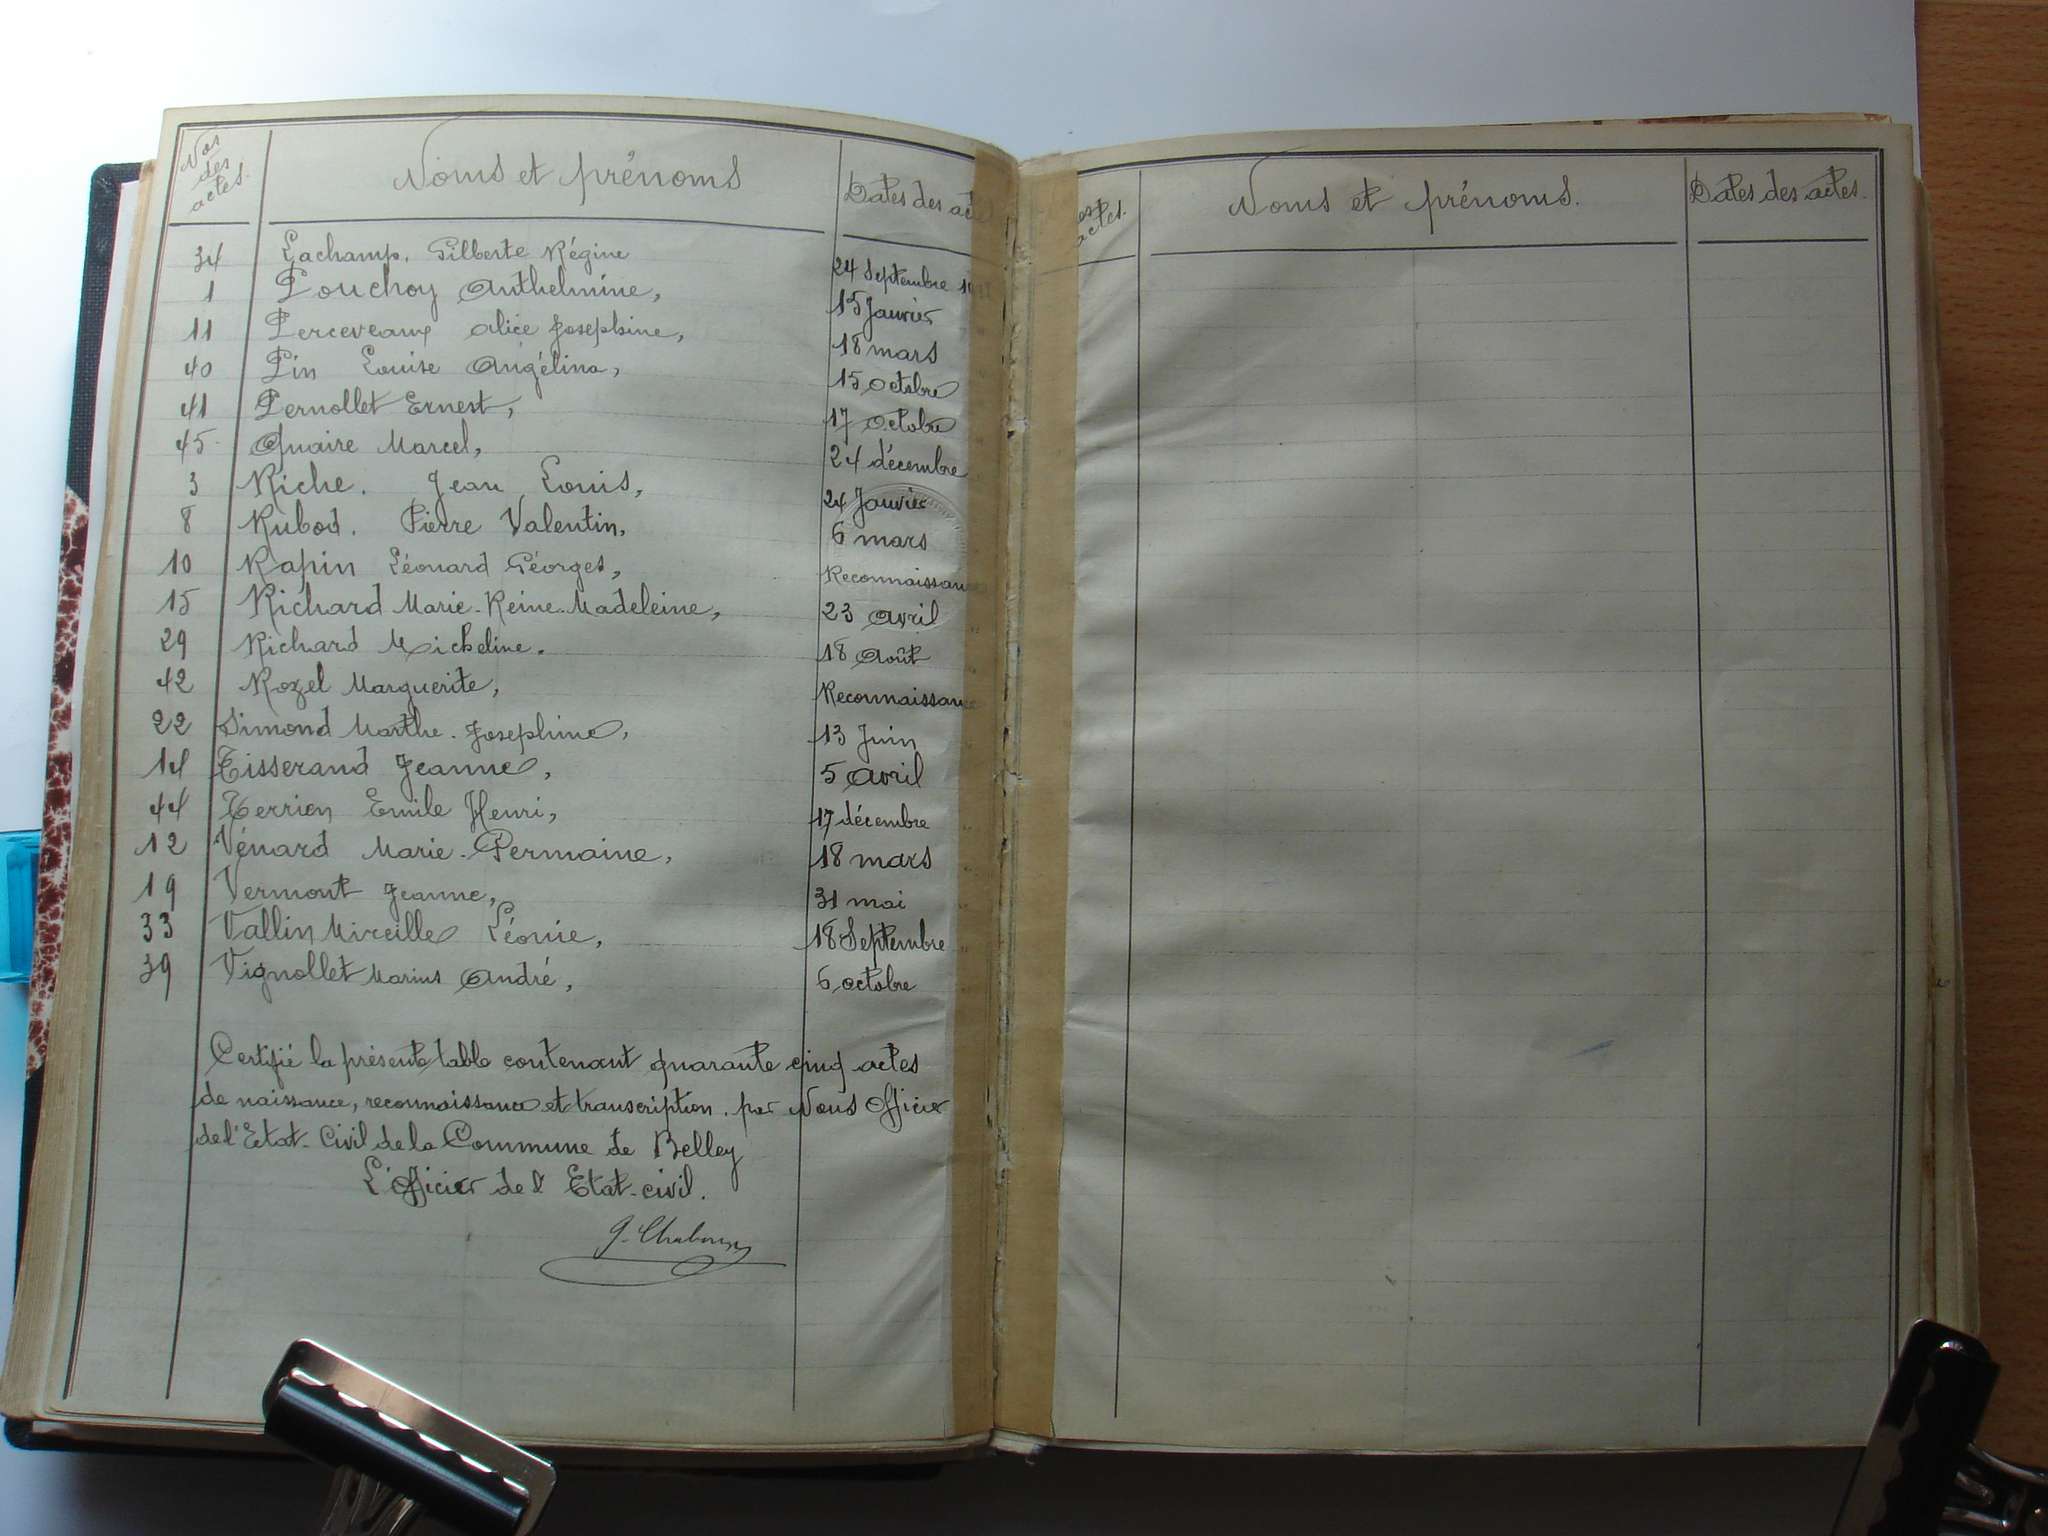 Nos des actes. Noms et prénoms Dates des actes
34 Lachamp. Gilberte Régine 24 Septembre
1 Pouchoy Anthelmine, 15 Janvier
11 Perceveaux Alice Josephine, 18 mars
40 Pin Louise Angélina, 15 Octobre
41 Pernollet Ernest, 17 Octobre
45 Quaire Marcel, 24 décembre
3 Riche. Jean Louis, 24 Janvier
8 Rubod. Pierre Valentin, 6 mars
10 Rapin Léonard Géorges, Reconnaissance
15 Richard Marie-Reine-Madeleine, 23 Avril
29 Richard Micheline. 18 Août
42 Rozel Marguerite, Reconnaissance
22 Simond Marthe-Josephine, 13 Juin
14 Tisserand Jeanne, 5 Avril
44 Terrien Emile Henri, 17 décembre
12 Vénard Marie-Germaine, 18 mars
19 Vermont Jeanne, 31 mai
33 Vallin Mireille Léonie, 18 Septembre
39 Vignollet Marius André, 6 octobre
Certifié la présente table contenant quarante cinq actes
de naissance, reconnaissance et transcription. par Nous Officier
de l'Etat-Civil de la Commune de Belley
L'Officier de l'Etat-civil.
Nos actes. Noms et prénoms. Dates des actes.